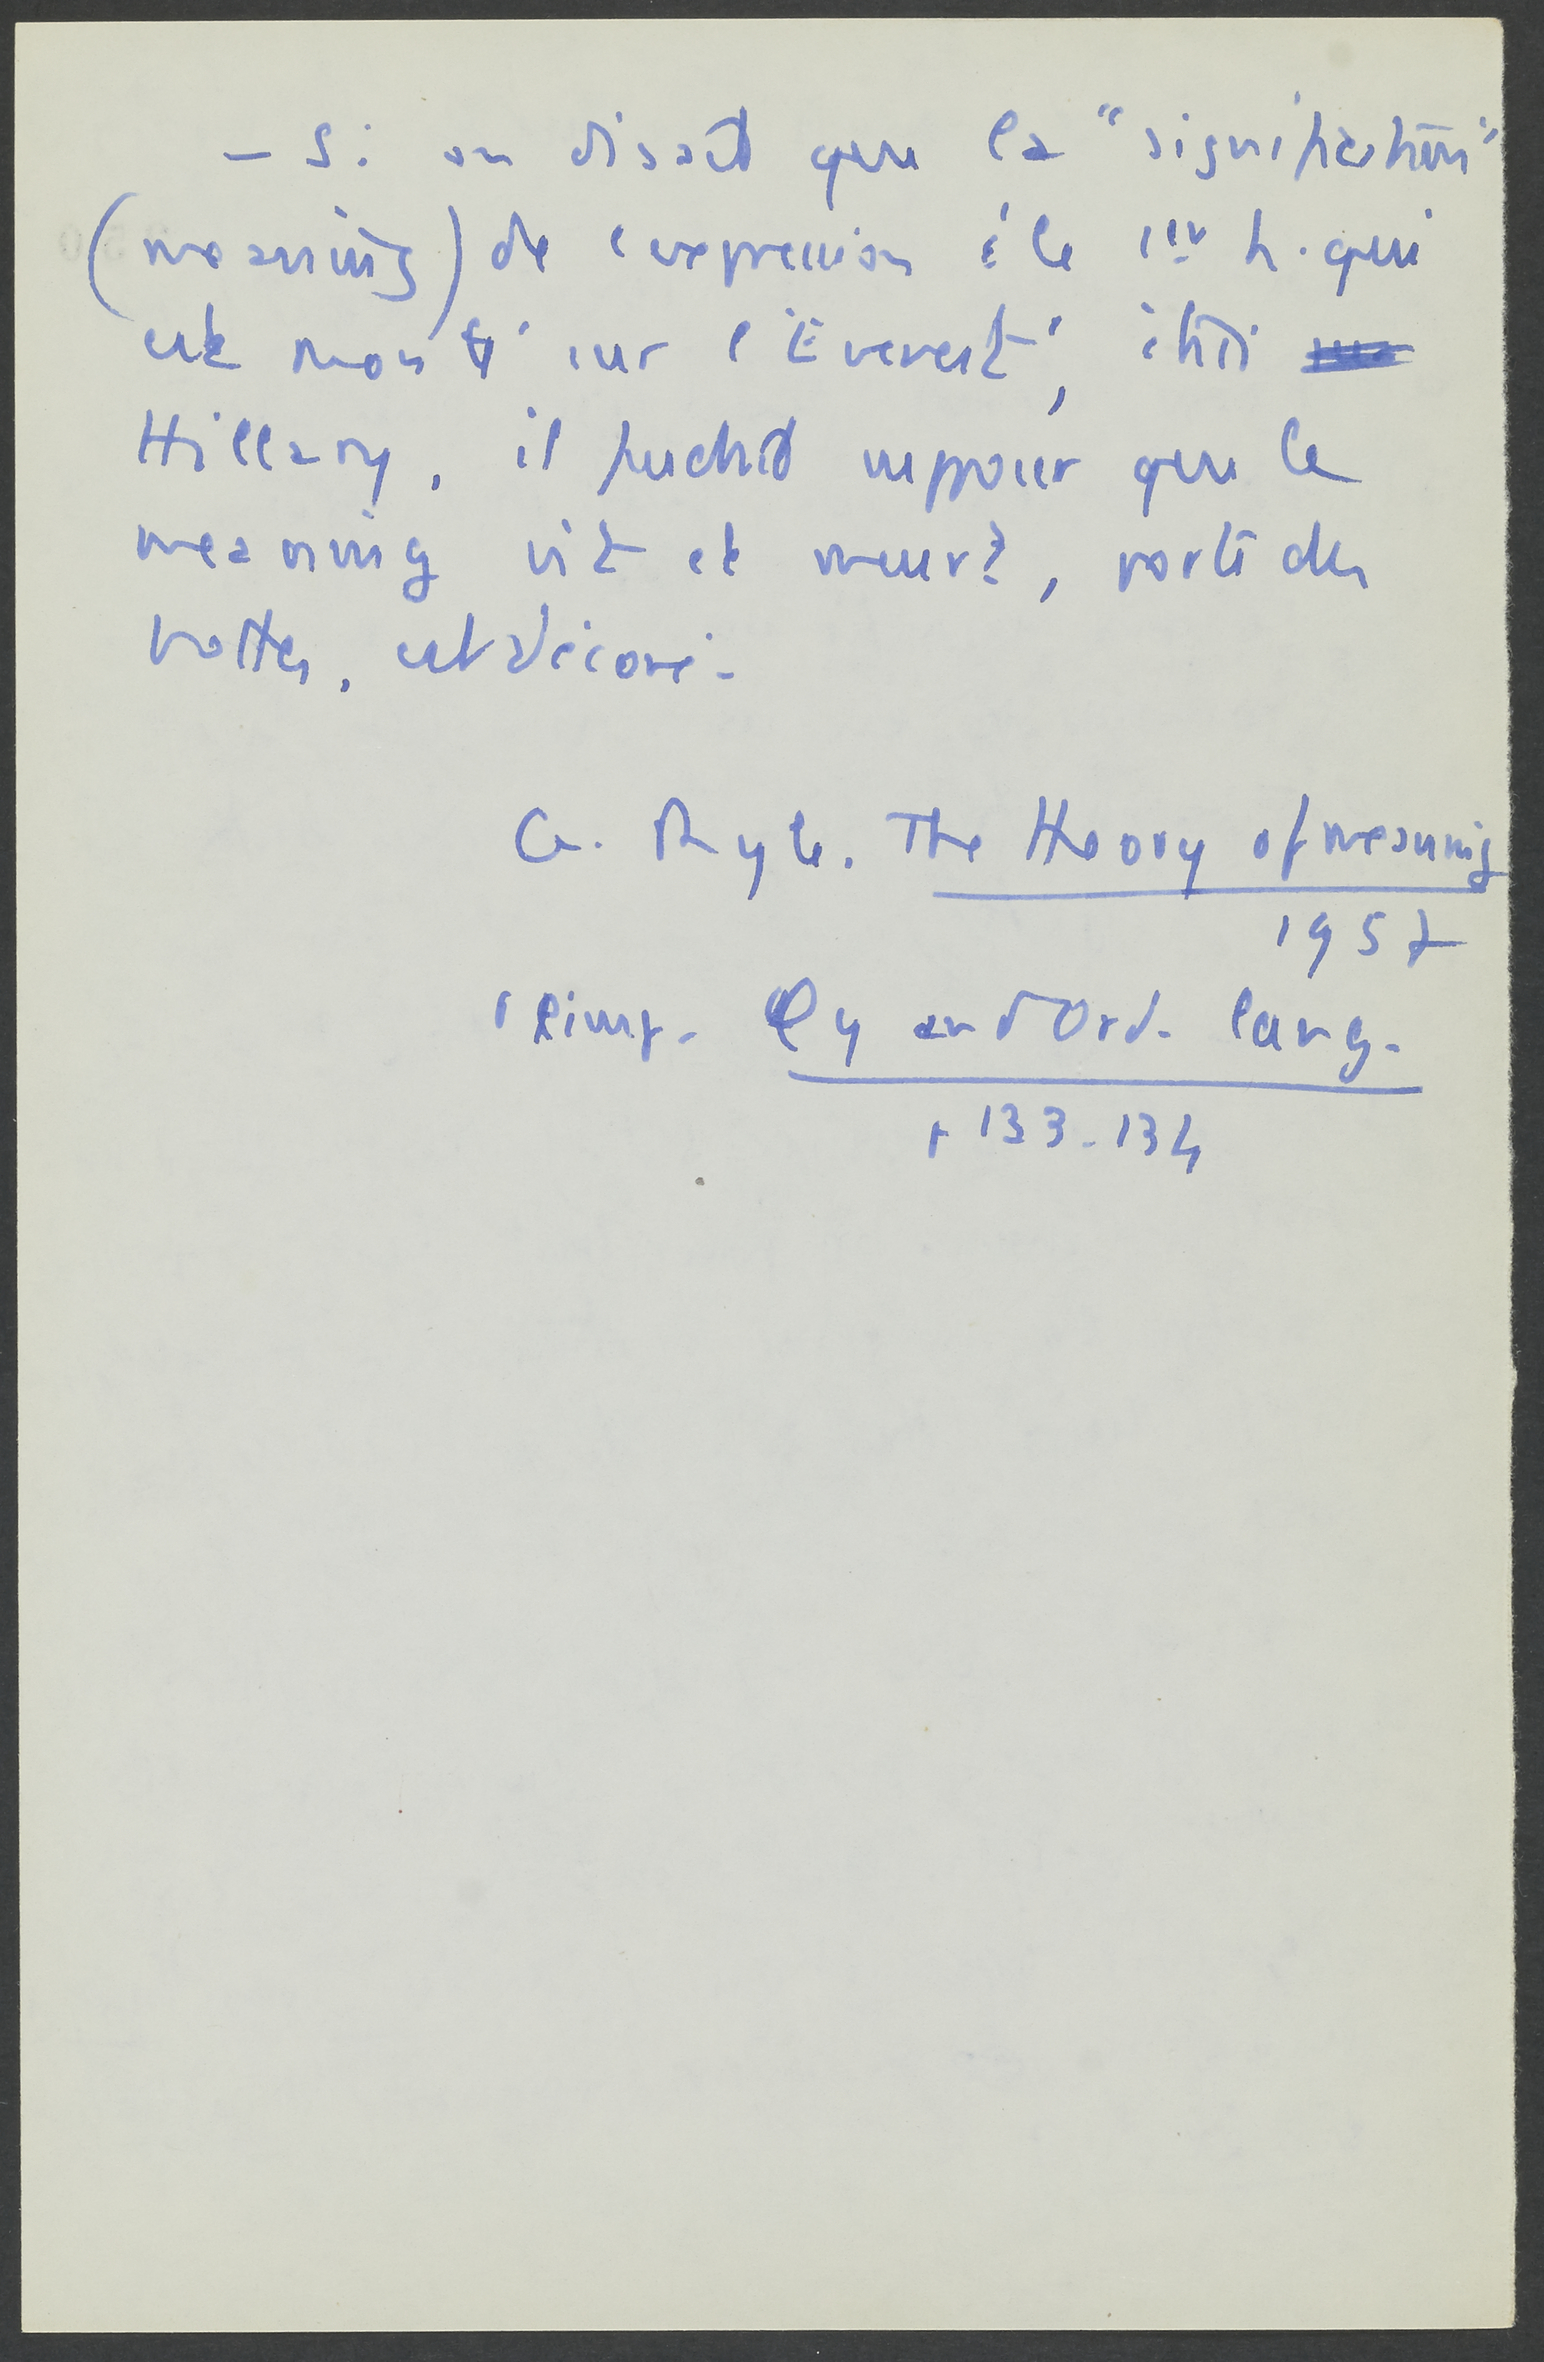 – Si on disait que la "signification"
(meaning) de l'expression 'le 1er h. qui
est monté sur l'Everest', était
Hillary, il faudrait supposer que le
meaning vit et meurt, porte des
bottes, est décoré.
G. Ryle. The theory of meaning
1957
réimp. φy and Ord. lang.
p 133-134